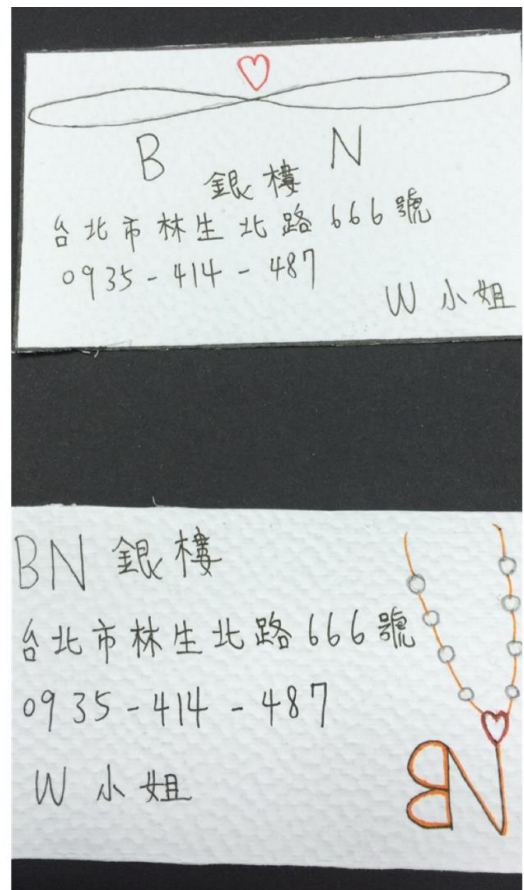 B N
銀樓
台北市林生北路666號
0935-414-487
W 小姐
BN 銀樓
台北市林生北路666號
0935-414-487
W 小姐
BN